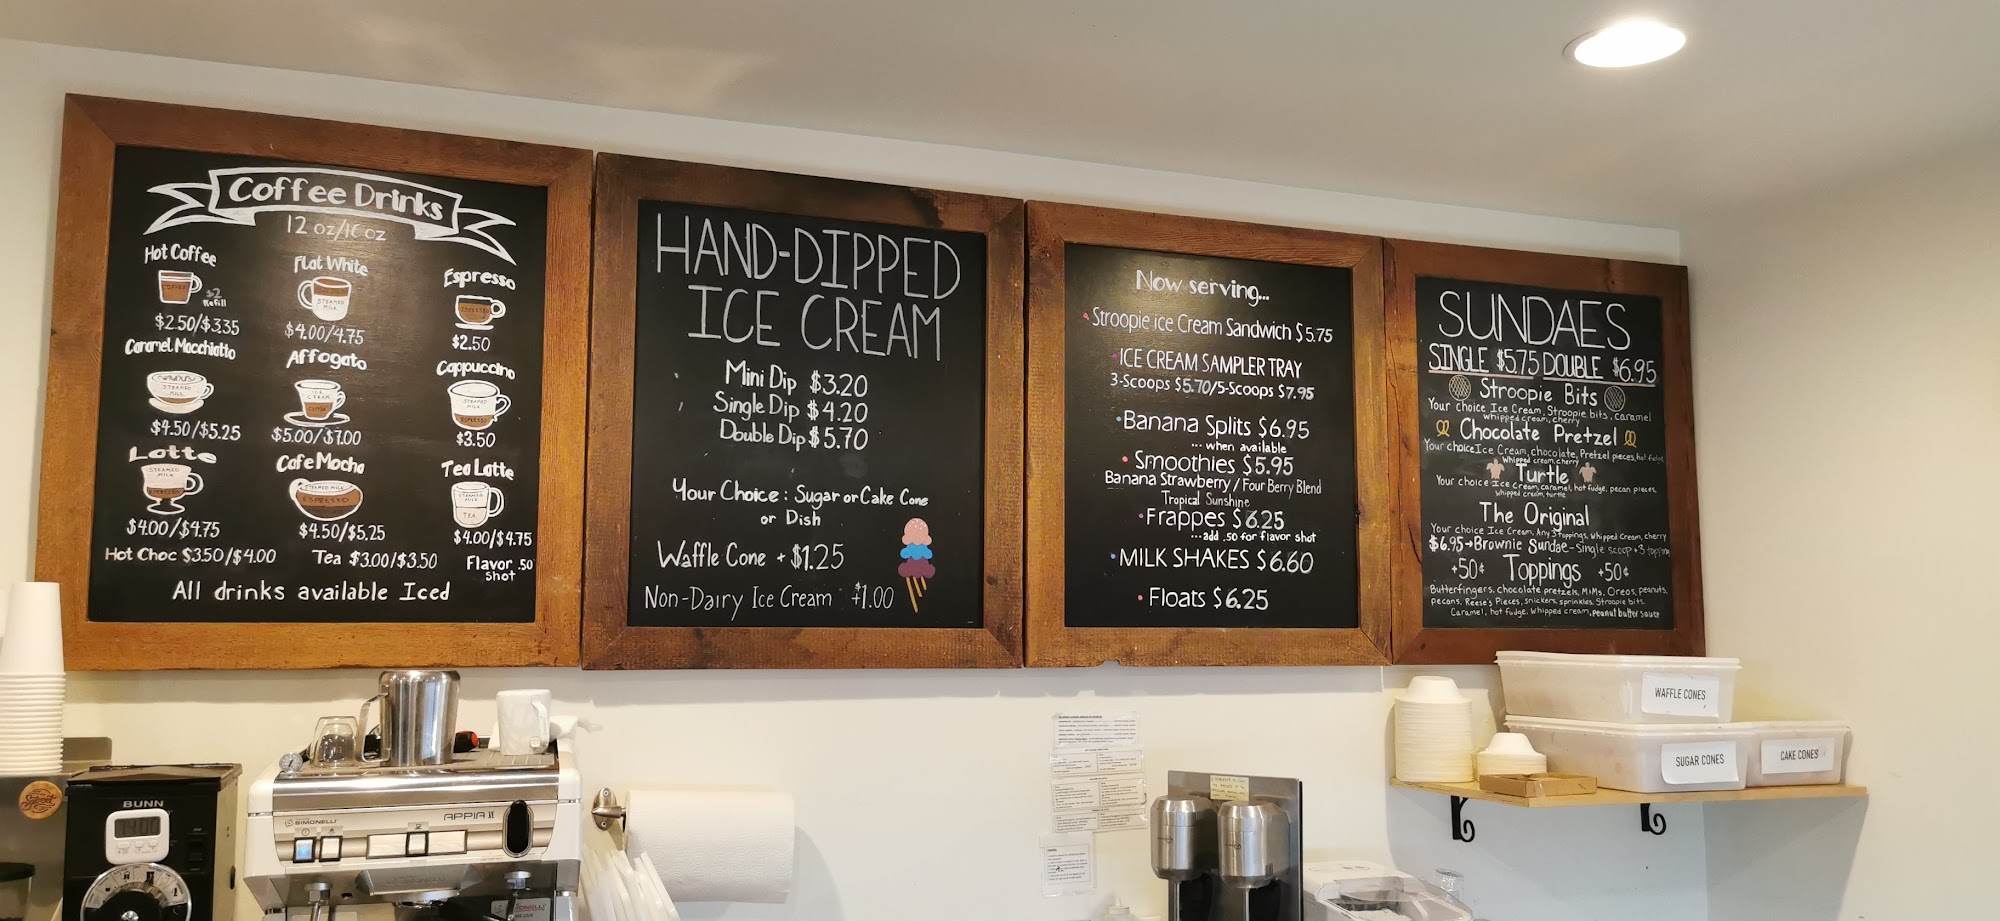 Coffee Drinks
12 oz/16 oz
Hot Coffee
COFFEE
$2
Refill
$2.50/$3.35
Flat White
STEAMED
MILK
$4.00/4.75
Espresso
ESPRESSO
$2.50
Caramel Macchiatto
STEAMED
MILK
$4.50/$5.25
Affogato
ICE
CREAM
COFFEE
$5.00/$7.00
Cappuccino
STEAMED
MILK
ESPRESSO
$3.50
Latte
STEAMED
MILK
ESPRESSO
$4.00/$4.75
Cafe Mocha
STEAMED MILK
ESPRESSO
$4.50/$5.25
Tea Latte
STEAMED
MILK
TEA
$4.00/$4.75
Hot Choc $3.50/$4.00
Tea $3.00/$3.50
Flavor .50
shot
All drinks available Iced
HAND-DIPPED
ICE CREAM
Mini Dip $3.20
Single Dip $4.20
Double Dip $5.70
Your Choice: Sugar or Cake Cone
or Dish
Waffle Cone +$1.25
Non-Dairy Ice Cream +$1.00
Now serving...
• Stroopie ice Cream Sandwich $5.75
• ICE CREAM SAMPLER TRAY
3-Scoops $5.70/5-Scoops $7.95
• Banana Splits $6.95
... when available
• Smoothies $5.95
Banana Strawberry / Four Berry Blend
Tropical Sunshine
• Frappes $6.25
...add .50 for flavor shot
• MILK SHAKES $6.60
• Floats $6.25
SUNDAES
SINGLE $5.75 DOUBLE $6.95
Stroopie Bits
Your choice Ice Cream, Stroopie bits, caramel
whipped cream, cherry
Chocolate Pretzel
Your choice Ice Cream, chocolate, Pretzel pieces, hot fudge,
Whipped cream, cherry
Turtle
Your choice Ice Cream, caramel, hot fudge, pecan pieces
whipped cream, turtle
The Original
Your choice Ice Cream, Any 3 toppings, Whipped Cream, cherry
$6.95→Brownie Sundae-Single scoop+3 topping
+50¢ Toppings +50¢
Butterfingers, chocolate pretzels, M&Ms, Oreos, peanuts,
pecans, Reese's Pieces, snickers, sprinkles, Stroopie bits
Caramel, hot fudge, whipped cream, peanut butter sauce
WAFFLE CONES
SUGAR CONES
CAKE CONES
BUNN
SIMONELLI
APPIA II